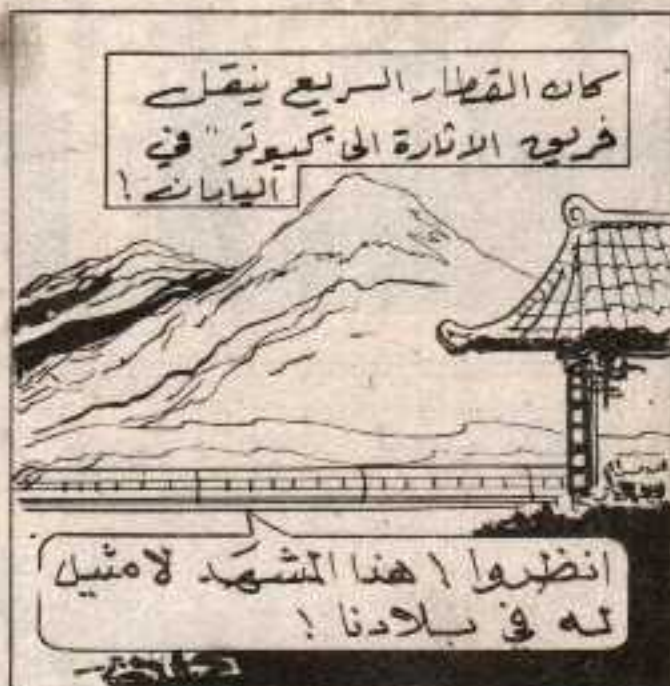 كان القطار السريع ينقل
فريق الاثارة الى "كيوتو" في
اليابان !
انظروا ! هذا المشهد لا مثيل
له في بلادنا !